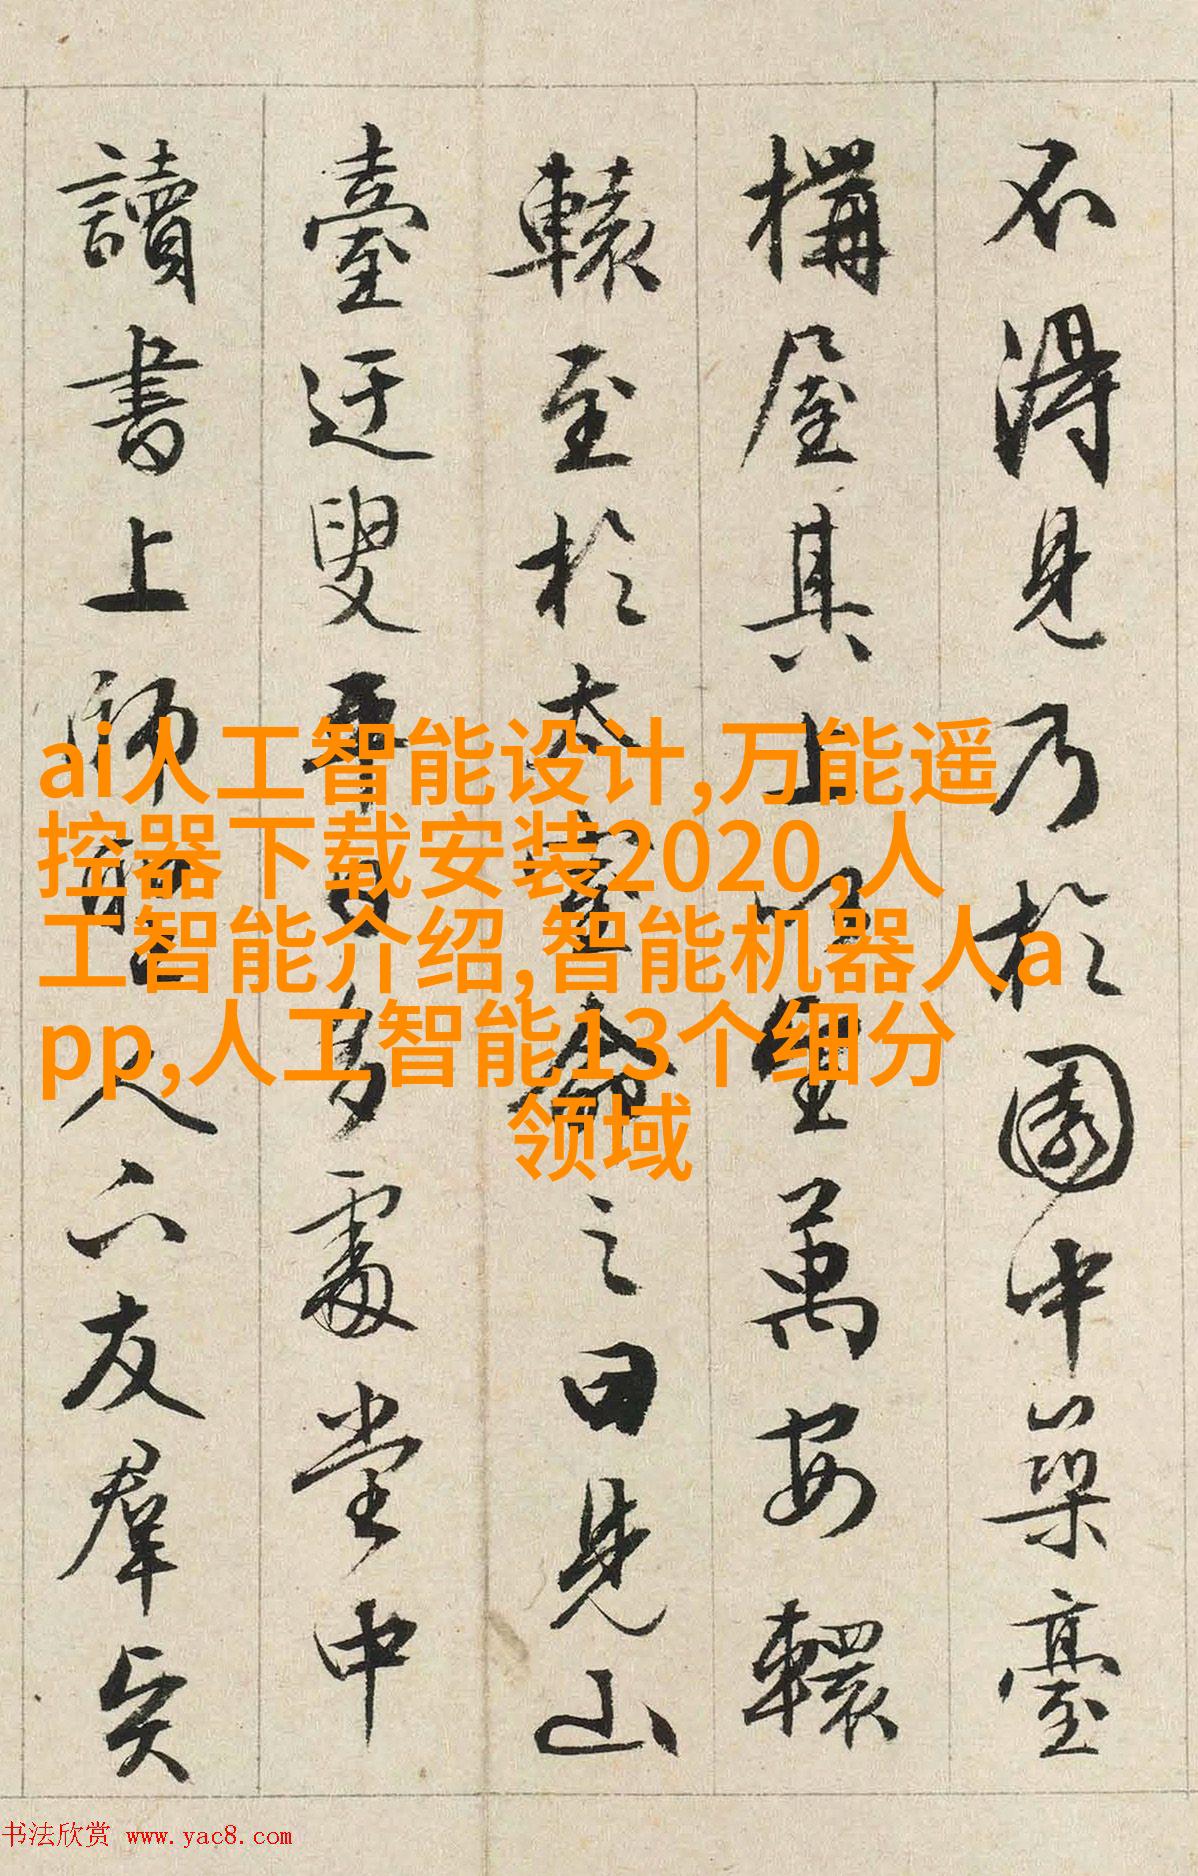 不得見乃於園中築臺
構屋其上以望萬安轘
轅至於太室命之曰見山
臺迂叟平日多處堂中
讀書上師聖人下友羣賢
ai人工智能设计,万能遥
控器下载安装2020,人
工智能介绍,智能机器人a
pp,人工智能13个细分
领域
书法欣赏 www.yac8.com